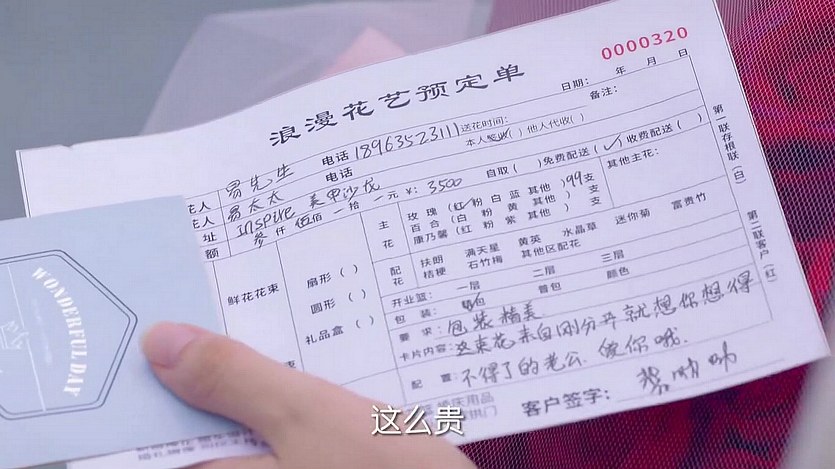 0000320
浪漫花艺预定单
日期: 年 月 日
花人 易先生 电话 18963523111 送花时间: 备注:
花人 易太太 电话 本人签收( ) 他人代收( )
址 Inspire 美甲沙龙 自取( ) 免费配送(✓) 收费配送( )
额 叁仟 伍佰 一拾 一元 ¥: 3500
主花 玫瑰(红 粉 白 蓝 其他 )99支 其他主花:
百合(白 粉 黄 其他 ) 支
康乃馨(红 粉 紫 其他 ) 支
配花 扶朗 满天星 黄英 水晶草 迷你菊 富贵竹
桔梗 石竹梅 其他区配花
鲜花花束 扇形( )
圆形( )
礼品盒( )
开业篮: 一层 二层 三层
包装: 普包 颜色
要求: 包装精美
卡片内容: 这束花来自刚分开就想你想得
配置: 不得了的老公 使你哦.
客户签字:
第一联存根联(白) 第二联客户(红)
WONDERFUL DAY
这么贵